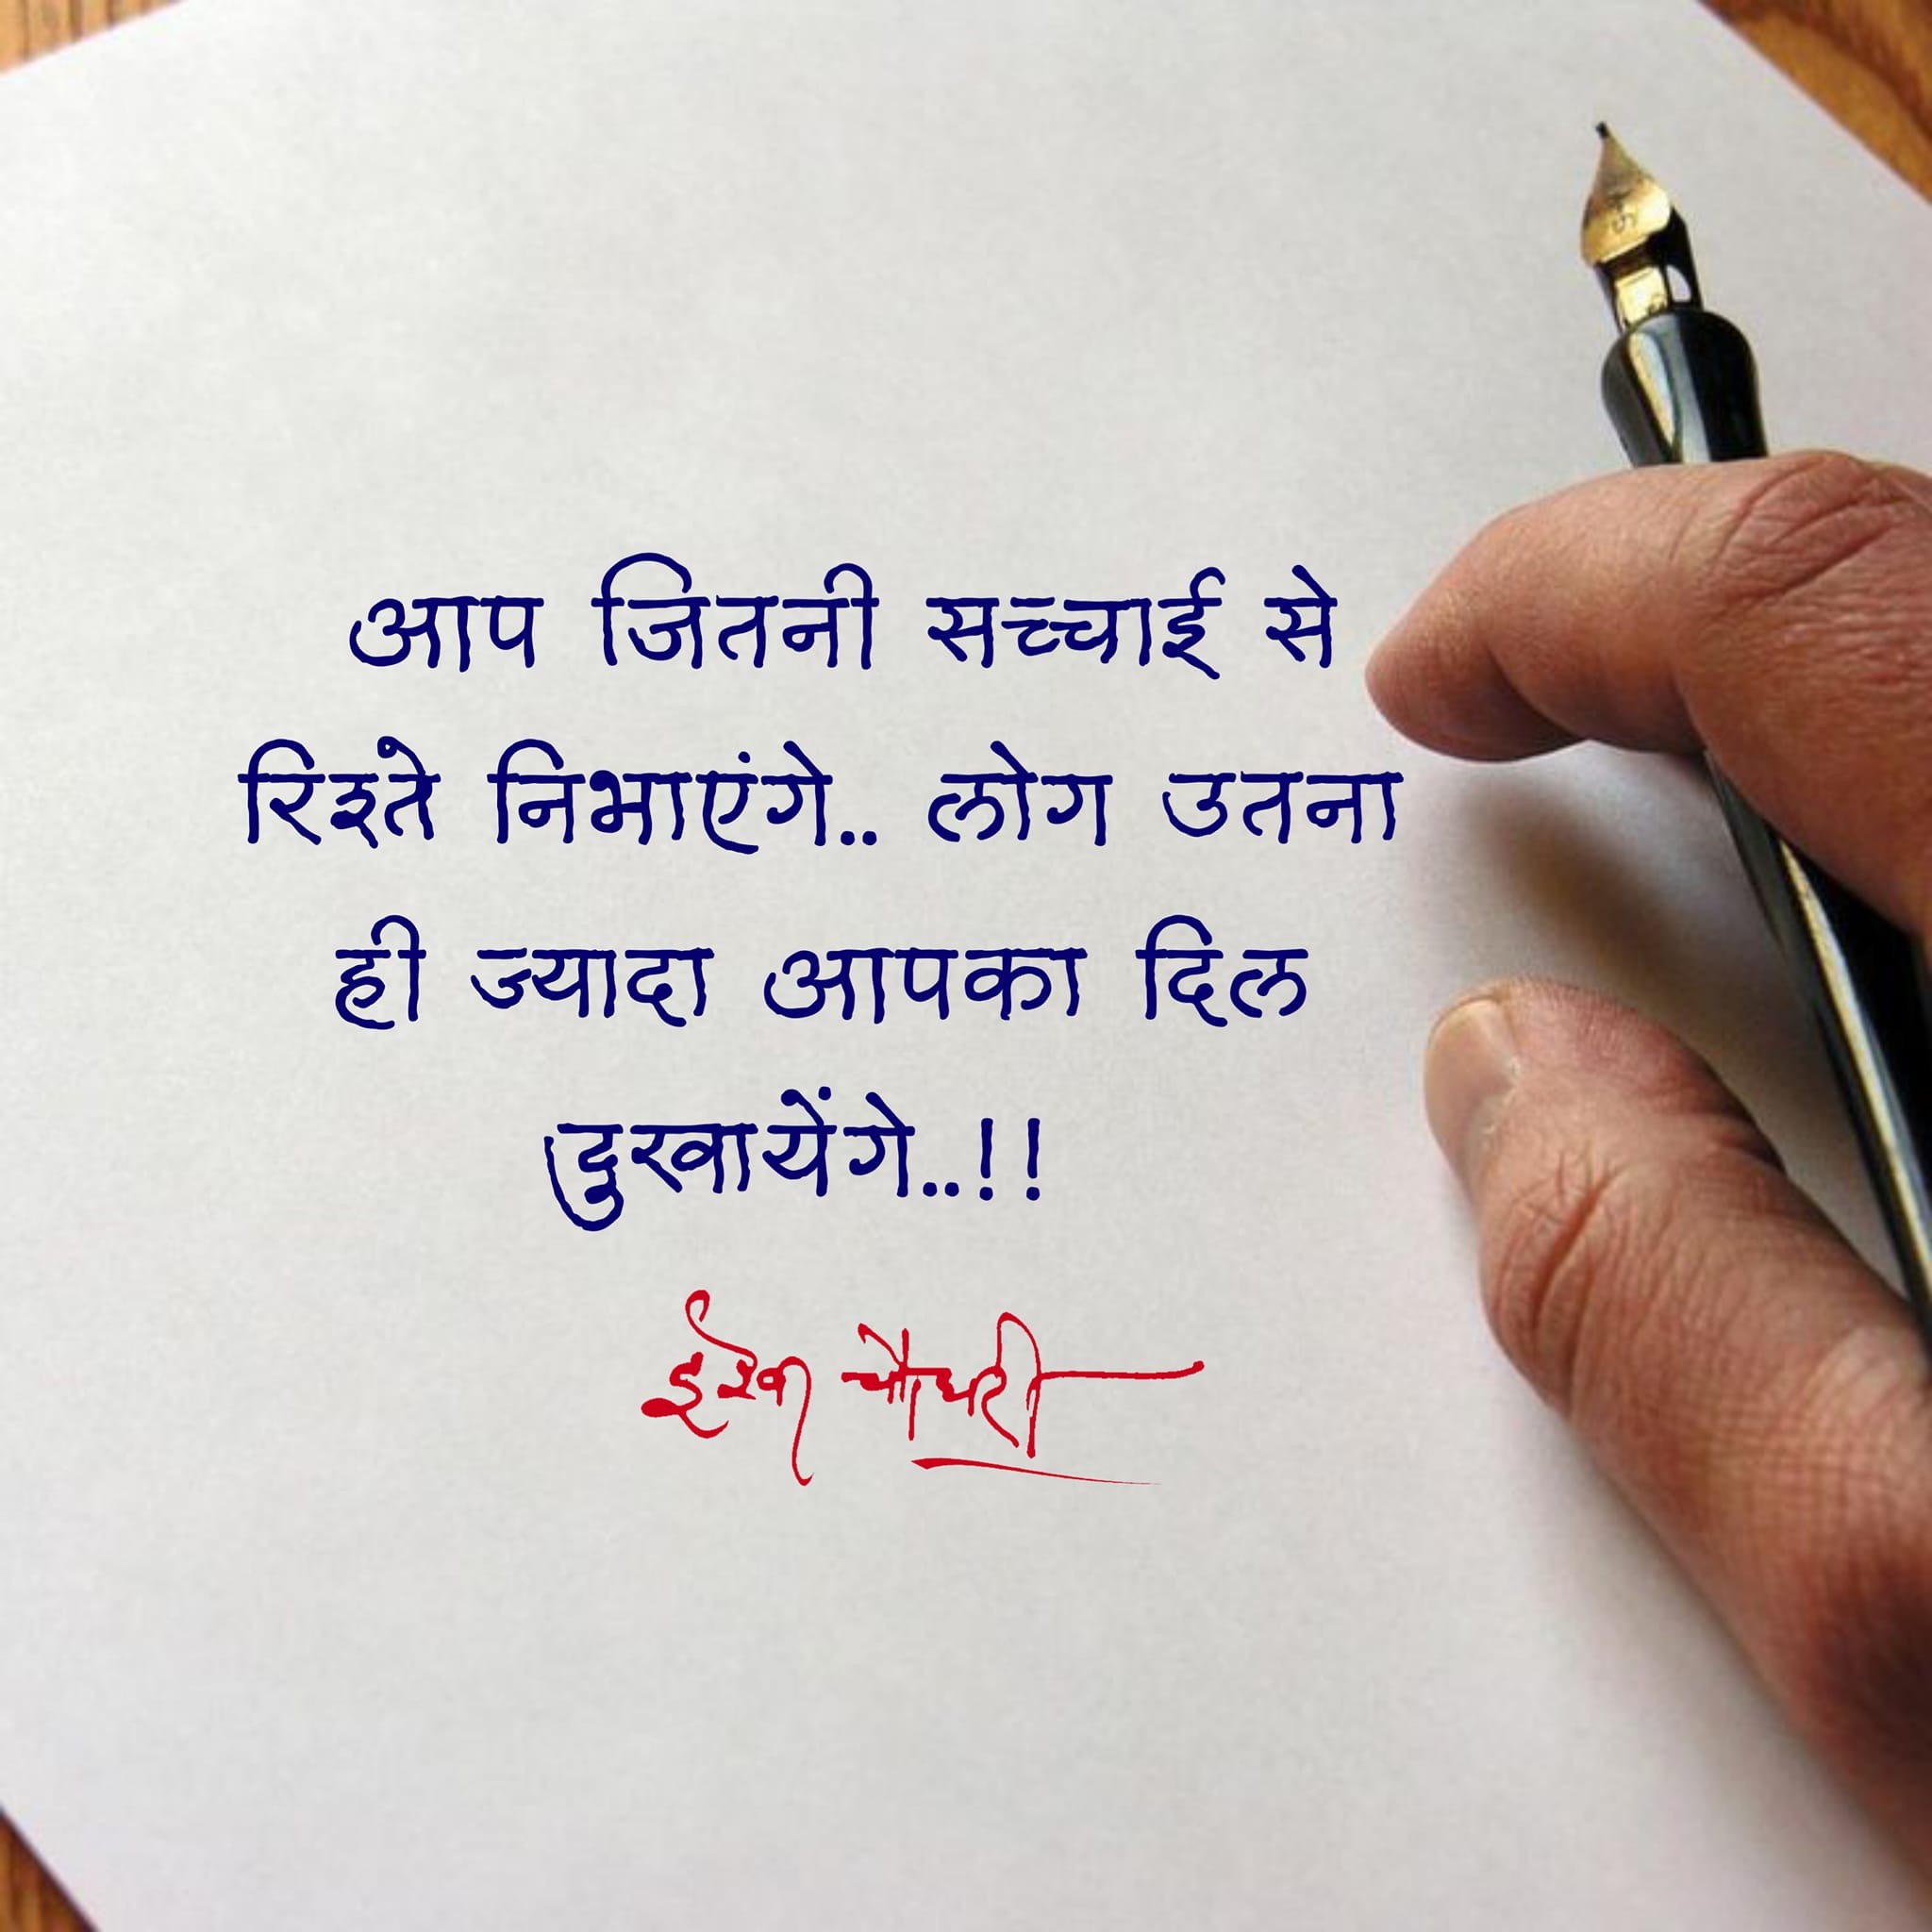 आप जितनी सच्चाई से
रिश्ते निभाएंगे.. लोग उतना
ही ज्यादा आपका दिल
दुखायेंगे..!!
चौधरी